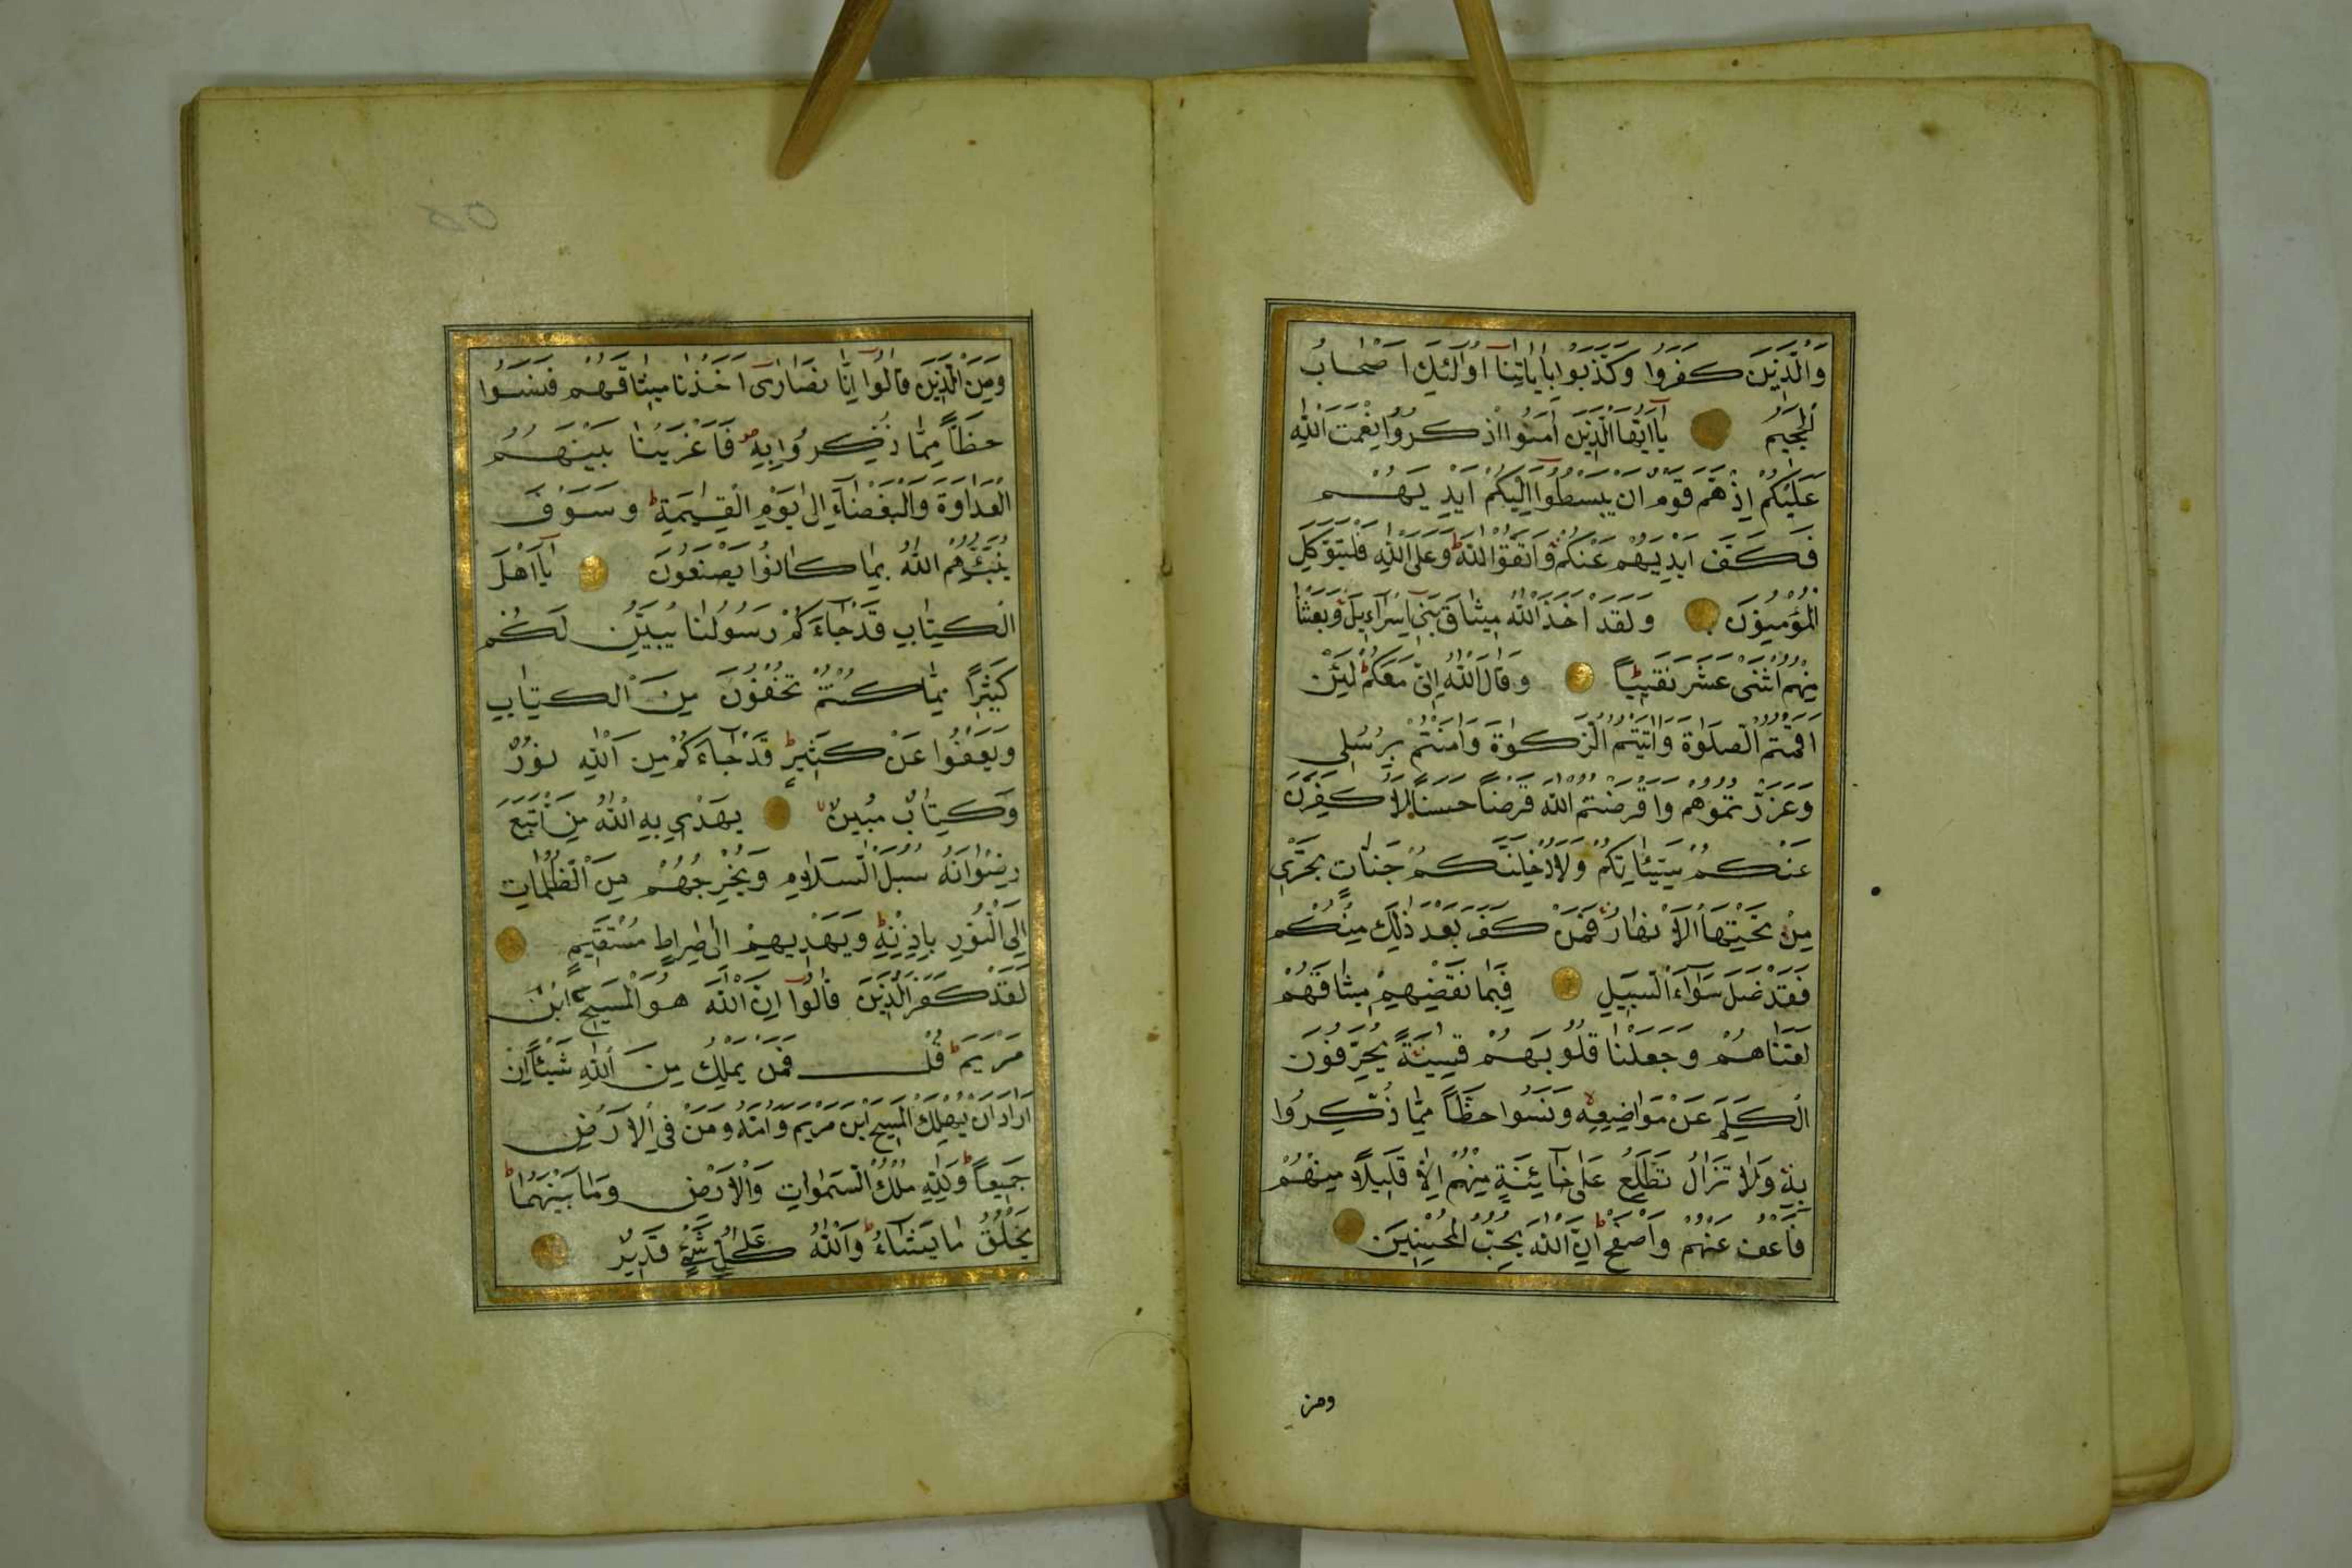 وَالَّذِينَ كَفَرُوا وَكَذَّبُوا بِاٰيَاتِنَٓا اُولٰٓئِكَ اَصْحَابُ
الْجَحِيمِ يَٓا اَيُّهَا الَّذِينَ اٰمَنُوا اذْكُرُوا نِعْمَتَ اللّٰهِ
عَلَيْكُمْ اِذْ هَمَّ قَوْمٌ اَنْ يَبْسُطُٓوا اِلَيْكُمْ اَيْدِيَهُمْ
فَكَفَّ اَيْدِيَهُمْ عَنْكُمْ وَاتَّقُوا اللّٰهَ وَعَلَى اللّٰهِ فَلْيَتَوَكَّلِ
الْمُؤْمِنُونَ وَلَقَدْ اَخَذَ اللّٰهُ مِيثَاقَ بَنِٓي اِسْرَٓاءِيلَ وَبَعَثْنَا
مِنْهُمُ اثْنَىْ عَشَرَ نَقِيبًا وَقَالَ اللّٰهُ اِنِّي مَعَكُمْ لَئِنْ
اَقَمْتُمُ الصَّلٰوةَ وَاٰتَيْتُمُ الزَّكٰوةَ وَاٰمَنْتُمْ بِرُسُلِي
وَعَزَّرْتُمُوهُمْ وَاَقْرَضْتُمُ اللّٰهَ قَرْضًا حَسَنًا لَاُكَفِّرَنَّ
عَنْكُمْ سَيِّئَاتِكُمْ وَلَاُدْخِلَنَّكُمْ جَنَّاتٍ تَجْرِي
مِنْ تَحْتِهَا الْاَنْهَارُ فَمَنْ كَفَرَ بَعْدَ ذٰلِكَ مِنْكُمْ
فَقَدْ ضَلَّ سَوَٓاءَ السَّبِيلِ فَبِمَا نَقْضِهِمْ مِيثَاقَهُمْ
لَعَنَّاهُمْ وَجَعَلْنَا قُلُوبَهُمْ قَاسِيَةً يُحَرِّفُونَ
الْكَلِمَ عَنْ مَوَاضِعِهِ وَنَسُوا حَظًّا مِمَّا ذُكِّرُوا
بِهِ وَلَا تَزَالُ تَطَّلِعُ عَلٰى خَٓائِنَةٍ مِنْهُمْ اِلَّا قَلِيلًا مِنْهُمْ
فَاعْفُ عَنْهُمْ وَاصْفَحْ اِنَّ اللّٰهَ يُحِبُّ الْمُحْسِنِينَ
ومن
وَمِنَ الَّذِينَ قَالُٓوا اِنَّا نَصَارٰٓى اَخَذْنَا مِيثَاقَهُمْ فَنَسُوا
حَظًّا مِمَّا ذُكِّرُوا بِهِ فَاَغْرَيْنَا بَيْنَهُمُ
الْعَدَاوَةَ وَالْبَغْضَٓاءَ اِلٰى يَوْمِ الْقِيٰمَةِ وَسَوْفَ
يُنَبِّئُهُمُ اللّٰهُ بِمَا كَانُوا يَصْنَعُونَ يَٓا اَهْلَ
الْكِتَابِ قَدْ جَٓاءَكُمْ رَسُولُنَا يُبَيِّنُ لَكُمْ
كَثِيرًا مِمَّا كُنْتُمْ تُخْفُونَ مِنَ الْكِتَابِ
وَيَعْفُوا عَنْ كَثِيرٍ قَدْ جَٓاءَكُمْ مِنَ اللّٰهِ نُورٌ
وَكِتَابٌ مُبِينٌ يَهْدِي بِهِ اللّٰهُ مَنِ اتَّبَعَ
رِضْوَانَهُ سُبُلَ السَّلَامِ وَيُخْرِجُهُمْ مِنَ الظُّلُمَاتِ
اِلَى النُّورِ بِاِذْنِهِ وَيَهْدِيهِمْ اِلٰى صِرَاطٍ مُسْتَقِيمٍ
لَقَدْ كَفَرَ الَّذِينَ قَالُٓوا اِنَّ اللّٰهَ هُوَ الْمَسِيحُ ابْنُ
مَرْيَمَ قُلْ فَمَنْ يَمْلِكُ مِنَ اللّٰهِ شَيْئًا اِنْ
اَرَادَ اَنْ يُهْلِكَ الْمَسِيحَ ابْنَ مَرْيَمَ وَاُمَّهُ وَمَنْ فِي الْاَرْضِ
جَمِيعًا وَلِلّٰهِ مُلْكُ السَّمٰوَاتِ وَالْاَرْضِ وَمَا بَيْنَهُمَا
يَخْلُقُ مَا يَشَٓاءُ وَاللّٰهُ عَلٰى كُلِّ شَيْءٍ قَدِيرٌ